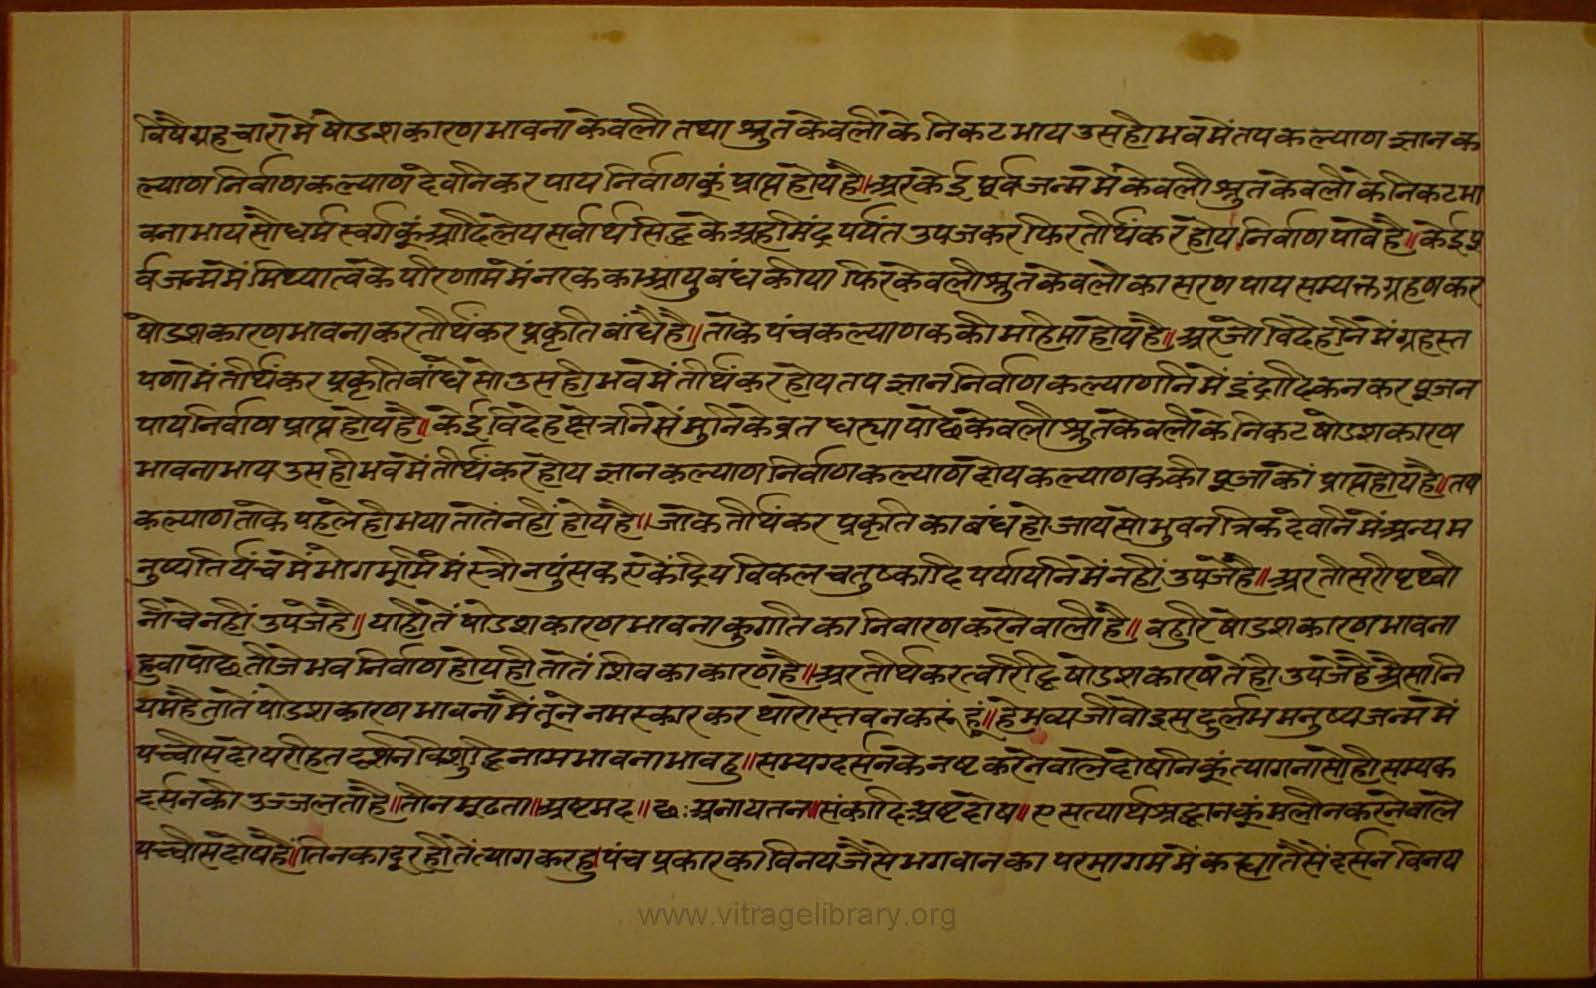 विषै ग्रहचारामें षोडशकारण भावना केवली तथा श्रुतकेवली के निकट भाय उसही भवमें तपकल्याण ज्ञानक
ल्याण निर्वाणकल्याण देवनिकर पाय निर्वाणकूं प्राप्त होय है॥ अर केई पूर्वजन्ममें केवली श्रुतकेवली के निकट भा
वना भाय सौधर्म स्वर्गकूं आदि लेय सर्वार्थसिद्धि के अहमिंद्र पर्यंत उपजकर फिर तीर्थंकर होय निर्वाण पावे है॥ केई पू
र्वजन्ममें मिथ्यात्वके परिणाममें नरकका आयु बंध कीया फिर केवली श्रुतकेवली का सरण पाय सम्यक्त ग्रहण कर
षोडशकारण भावना कर तीर्थंकर प्रकृति बांधै है॥ ताके पंचकल्याणक की महिमा होय है॥ अर जो विदेहनिमें ग्रहस्त
पणामें तीर्थंकर प्रकृति बांधे सो उसही भवमें तीर्थंकर होय तप ज्ञान निर्वाण कल्याणनिमें इंद्रादिकनकर पूजन
पाय निर्वाण प्राप्त होय है॥ केई विदेह क्षेत्रनिमें मुनिके व्रत धरया पाछे केवली श्रुतकेवली के निकट षोडशकारण
भावना भाय उसही भवमें तीर्थंकर होय ज्ञानकल्याण निर्वाणकल्याण दोय कल्याणक की पूजाकों प्राप्त होय है॥ तप
कल्याण ताके पहले ही भया तातें नहीं होय है॥ जाके तीर्थंकर प्रकृति का बंध हो जाय सो भुवनत्रिक देवनिमें अन्य म
नुष्य तिर्यंचमें भोगभूमिमें स्त्री नपुंसक एकेंद्रिय विकल चतुष्कादि पर्यायनिमें नहीं उपजे है॥ अर तीसरी पृथ्वी
नीचे नहीं उपजे है॥ याहीतें षोडशकारण भावना कुगति का निवारण करनेवाली है॥ बहुरि षोडशकारण भावना
हुवा पाछे तीजे भव निर्वाण होय ही तातें शिव का कारण है॥ अर तीर्थंकरत्व रिद्धि षोडशकारणतें ही उपजे है ऐसा नि
यम है तातें षोडशकारण भावना मैं तूने नमस्कार कर थारो स्तवन करूं हूं॥ हे भव्य जीवो इस दुर्लभ मनुष्य जन्ममें
पच्चीस दोष रहित दर्शनविशुद्धि नाम भावना भावहु॥ सम्यग्दर्सनके नष्ट करनेवाले दोषनिकूं त्यागना सोही सम्यक
दर्सनकी उज्जलता है॥ तीन मूढता॥ अष्ट मद॥ छः अनायतन॥ संकादि अष्ट दोष॥ ए सत्यार्थ श्रद्धानकूं मलीन करनेवाले
पच्चीस दोष है॥ तिनका दूरहीतें त्याग करहु पंच प्रकार का विनय जैसे भगवान का परमागम में कह्या तैसें दर्सन विनय
www.vitragelibrary.org